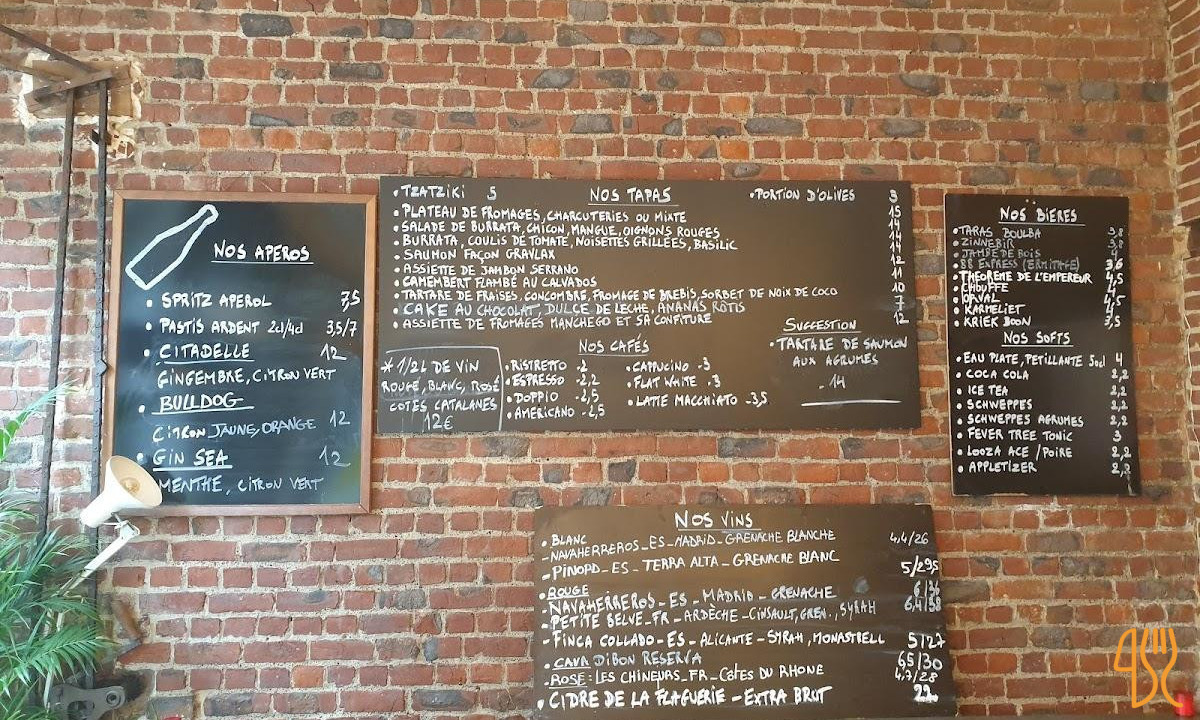 NOS APEROS
• SPRITZ APEROL 7,5
• PASTIS ARDENT 2cl/4cl 3,5/7
• CITADELLE 12
GINGEMBRE, CITRON VERT
• BULLDOG
CITRON JAUNE, ORANGE 12
• GIN SEA 12
MENTHE, CITRON VERT
• TZATZIKI 5
NOS TAPAS
• PORTION D'OLIVES 3
• PLATEAU DE FROMAGES, CHARCUTERIES OU MIXTE 15
• SALADE DE BURRATA, CHICON, MANGUE, OIGNONS ROUGES 14
• BURRATA, COULIS DE TOMATE, NOISETTES GRILLÉES, BASILIC 14
• SAUMON FAÇON GRAVLAX 14
• ASSIETTE DE JAMBON SERRANO 12
• CAMEMBERT FLAMBÉ AU CALVADOS 11
• TARTARE DE FRAISES, CONCOMBRE, FROMAGE DE BREBIS, SORBET DE NOIX DE COCO 10
• CAKE AU CHOCOLAT, DULCE DE LECHE, ANANAS RÔTIS 7
• ASSIETTE DE FROMAGES MANCHEGO ET SA CONFITURE 12
* 1/2L DE VIN
ROUGE, BLANC, ROSÉ
COTES CATALANES
12€
NOS CAFÉS
• RISTRETTO - 2
• ESPRESSO - 2,2
• DOPPIO - 2,5
• AMERICANO - 2,5
• CAPPUCINO - 3
• FLAT WHITE - 3
• LATTE MACCHIATO - 3,5
SUGGESTION
• TARTARE DE SAUMON
AUX AGRUMES
- 14
NOS BIERES
• TARAS BOULBA 3,8
• ZINNEBIR 3,8
• JAMBE DE BOIS 4
• EXPRESS (ERMITAGE) 3,6
• THEOREME DE L'EMPEREUR 4,5
• CHOUFFE
• ORVAL 4,5
• KARMELIET
• KRIEK BOON 3,5
NOS SOFTS
• EAU PLATE, PETILLANTE 50cl 4
• COCA COLA 2,2
• ICE TEA 2,2
• SCHWEPPES 2,2
• SCHWEPPES AGRUMES 2,2
• FEVER TREE TONIC 3
• LOOZA ACE / POIRE 2,2
• APPLETIZER 2,3
NOS VINS
• BLANC
- NAVAHERREROS_ES_MADRID_GRENACHE BLANCHE 4,4/26
- PINORD - ES - TERRA ALTA - GRENACHE BLANC 5/29,5
• ROUGE
- NAVAHERREROS - ES - MADRID - GRENACHE 6/36
- PETITE BELVE - FR - ARDÈCHE - CINSAULT, GREN., SYRAH 6,4/38
- FINCA COLLADO - ES - ALICANTE - SYRAH, MONASTRELL 5/27
• CAVA DIBON RESERVA 6,5/30
- ROSÉ : LES CHINEURS_FR_COTES DU RHONE 4,7/28
• CIDRE DE LA FLAGUERIE - EXTRA BRUT 22